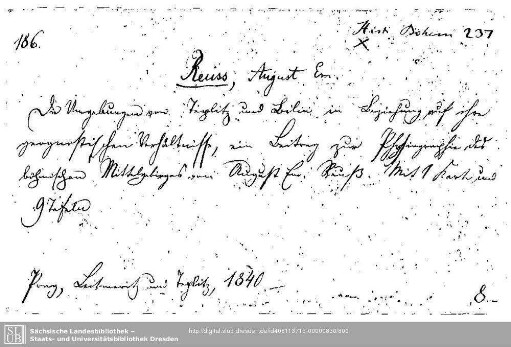 186.
Hist. Bohem 237
x
Reuss, August Em.
Die Umgebungen von Teplitz und Bilin in Beziehung auf ihre
geognostischen Verhältnisse, ein Beitrag zur Physiographie des
böhmischen Mittelgebirges von August Em. Reuß. Mit 1 Karte und
9 Tafeln
Prag, Leitmeritz und Teplitz, 1840
8.
Sächsische Landesbibliothek –
Staats- und Universitätsbibliothek Dresden